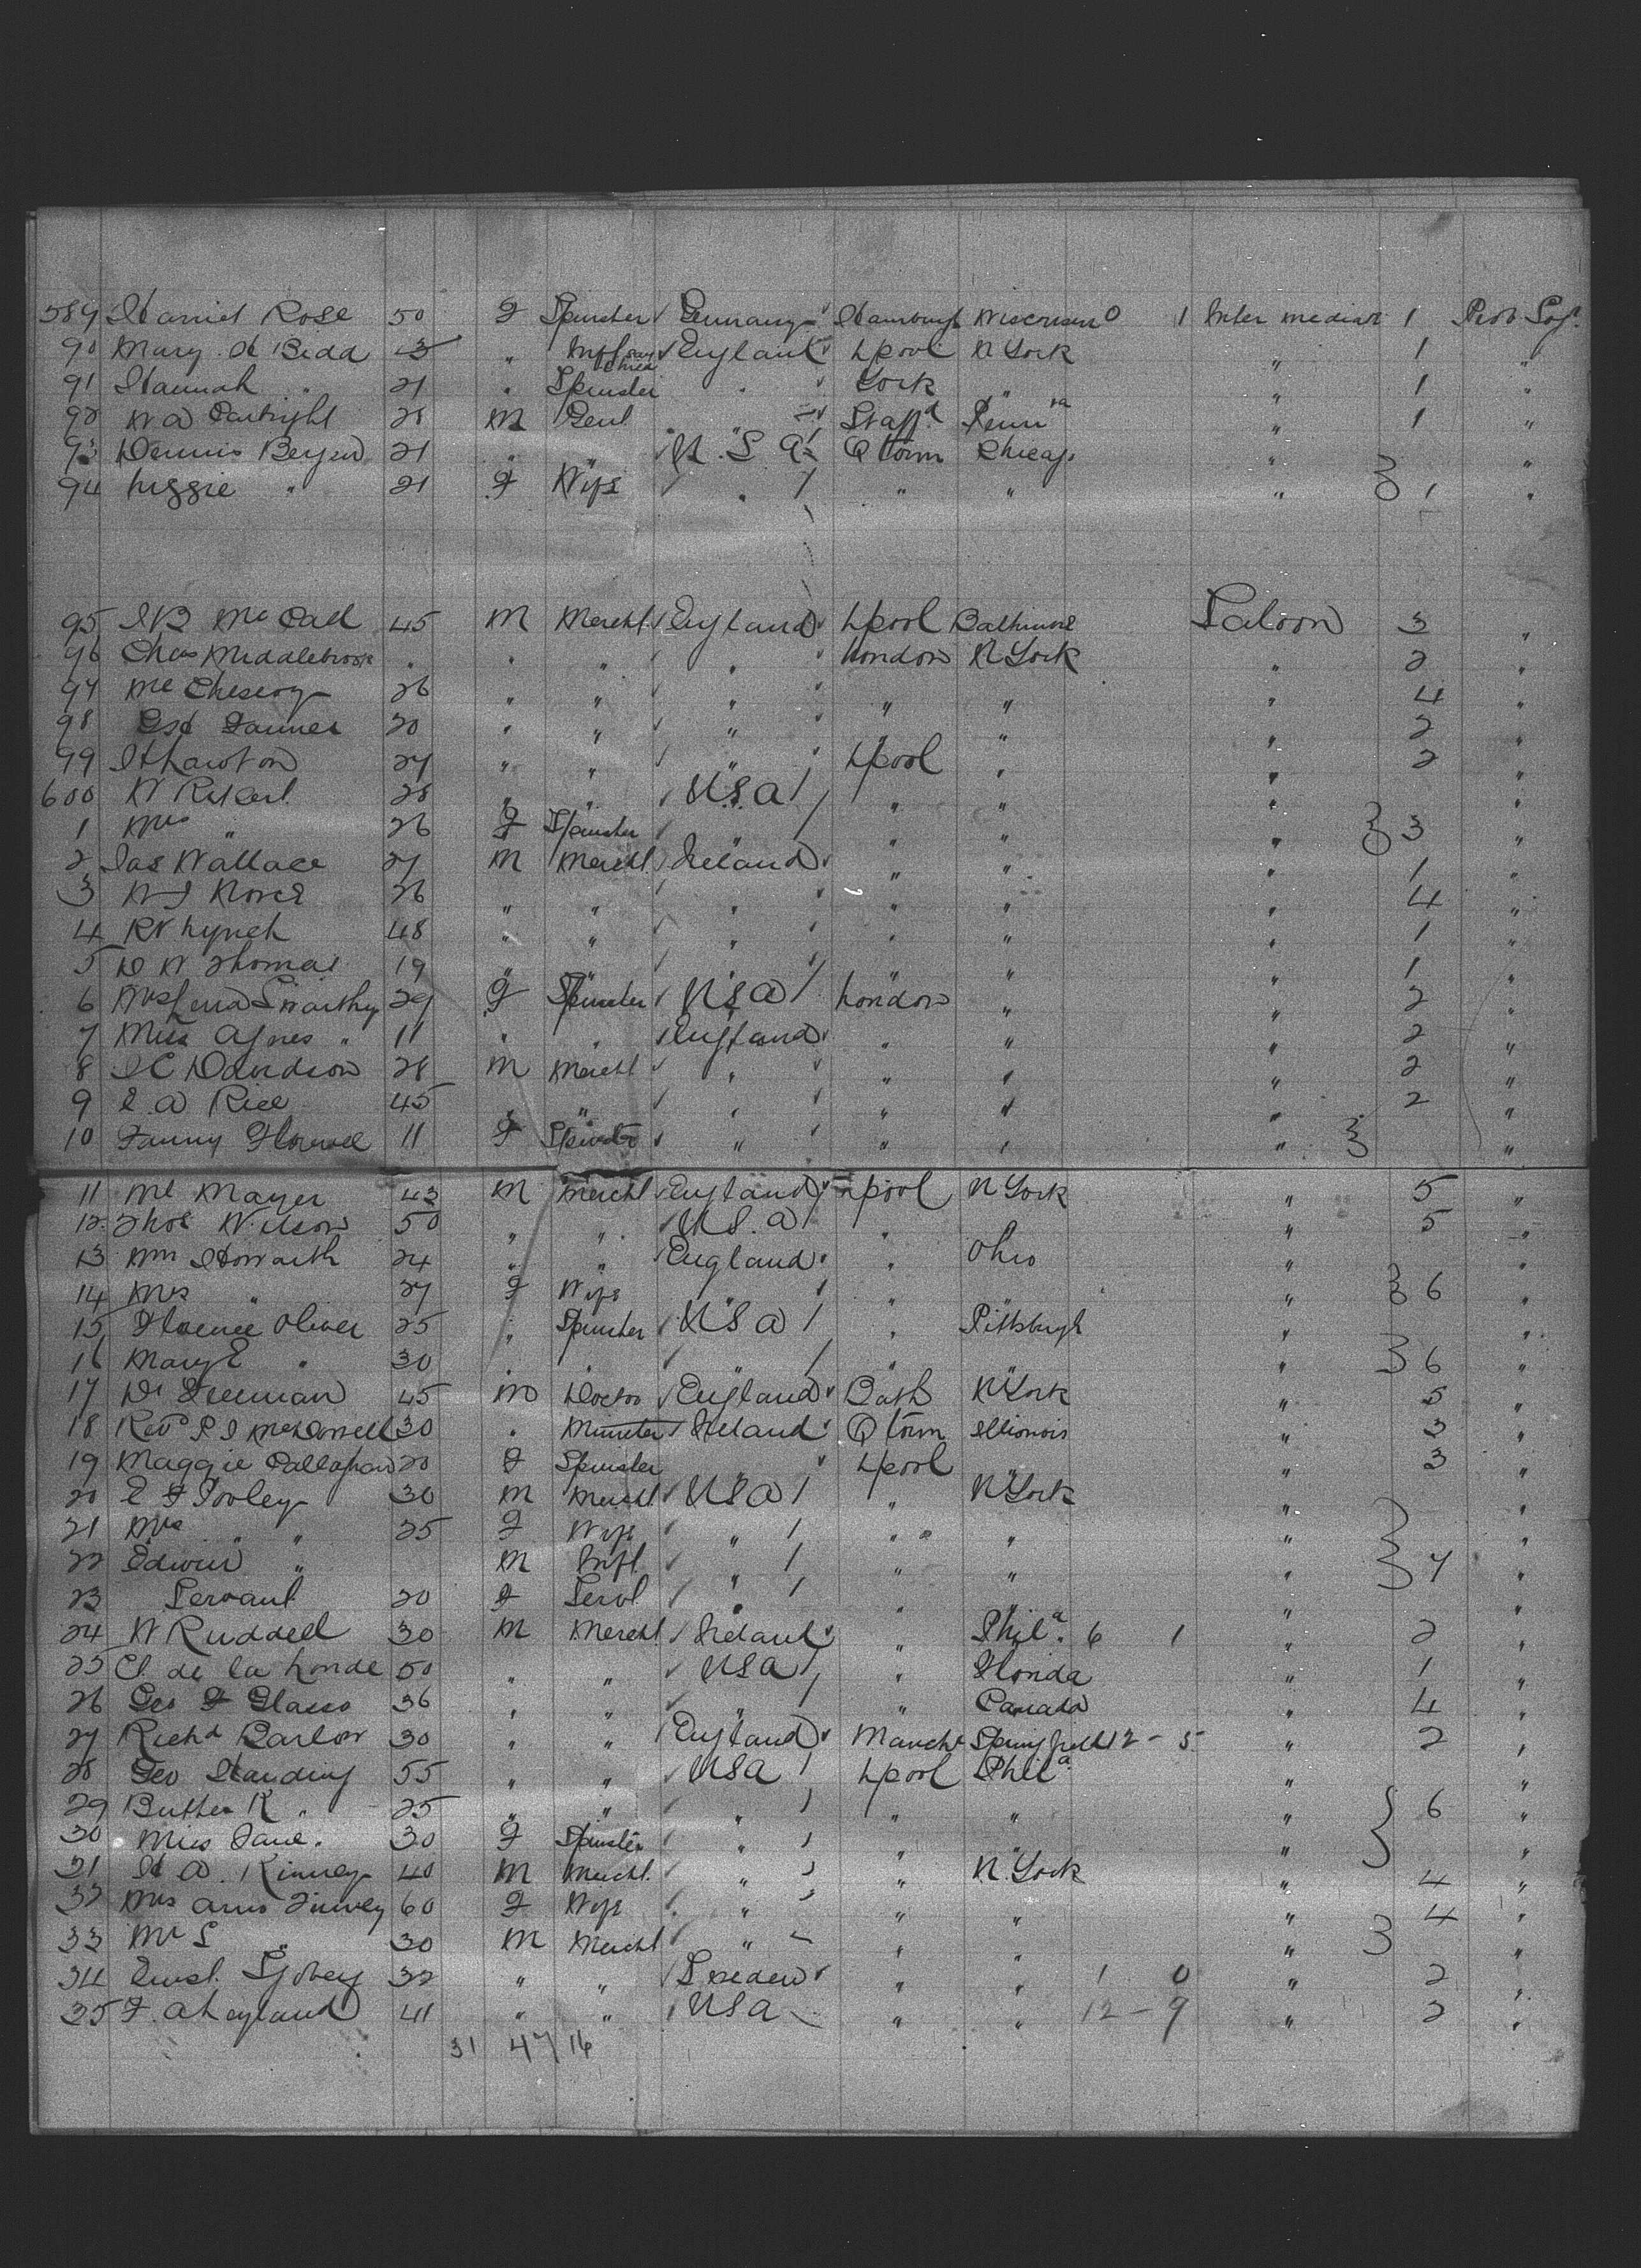 589 Harriet Rose 50 F Spinster Germany Hamburg Wisconsin 0 1 Intermediate 1 Prot Soj.
90 Mary H Bedd " England Lpool N York " 1 "
91 Hannah " 21 " Spinster " York " " 1 "
92 W A Cartright 28 M Gent " Staffd Penna " 1 "
93 Dennis Bergen 21 " " U.S.A Q town Chicag. " "
94 Lizzie " 21 F Wife " " " " 1 "
95 J B Mc Call 45 M Mercht England Lpool Baltimore Saloon 3 "
96 Chas Middlebrook " " " " London N York " 2 "
97 Mc Chesery 26 " " " " " " 4 "
98 Farmer 20 " " " " " " 2 "
99 Hhawton 27 " " " Lpool " " 2 "
600 W Rikert 28 " " U.S.A " " " "
1 Mrs " 26 F Spinster " " " " 3 "
2 Jas Wallace 27 M Mercht Ireland " " " 1 "
3 26 " " " " " " 4 "
4 RW Lynch 48 " " " " " " 1 "
5 D W Thomas 19 " " " " " " 1 "
6 Smarthy 29 F Spinster U S A London " " 2 "
7 Miss Agnes " 11 " " England " " " 2 "
8 J C Davidson 28 M Mercht " " " " 2 "
9 E. A Rice 45 " " " " " " 2 "
10 Fanny 11 F Spinster " " " " "
11 Mc Mayer 43 M Mercht England Lpool N York " 5 "
12 Thos Wilson 50 " " U.S.A " " 5 "
13 Wm Howarth 24 " " England " Ohio " "
14 Mrs " 27 F Wife " " " 6 "
15 Florence Oliver 25 " Spinster U S A " Pittsburgh " "
16 Mary E " 30 " " " " " 6 "
17 Dr Freeman 45 M Doctor England Bath N York " 5 "
18 Revd P J McDonnell 30 " Minister Ireland Q town Illionois " 3 "
19 Maggie Callaghan 20 F Spinster " Lpool " " 3 "
20 E F Pooley 30 M Mercht U S A " N York " "
21 Mrs " " 25 F Wife " " " " "
22 Edwin " M Inft " " " " 7 "
23 Servant 20 F Servt " " " " "
24 W Ruddell 30 M Mercht Ireland " Phila. 6 1 " 2 "
25 Cl. de la Londe 50 " " U S A " Florida " 1 "
26 Geo F Glasco 36 " " " " Canada " 4 "
27 Richd Barlow 30 " " England Manchr Springfield 12 - 5 " 2 "
28 Geo Harding 55 " " U S A Lpool Phila " "
29 Buther R " 25 " " " " " " 6 "
30 Miss Jane " 30 F Spinster " " " " "
31 H A. Kinney 40 M Mercht. " " N. York " 4 "
32 Mrs Ann 60 F Wife " " " " 4 "
33 Mr S " 30 M Mercht " " " " "
34 Ernst. Sjoberg 32 " " Sweden " " 1 0 " 2 "
35 F. A Leyland 41 " " U S A " " 12 - 9 " 2 "
31 47 16